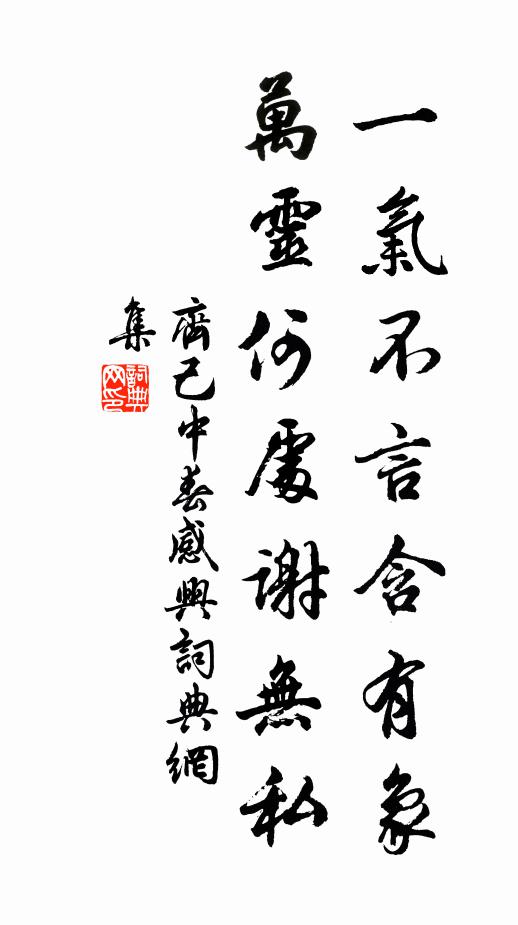 一氣不言含有象
萬靈何處謝無私
齊己中春感興詞典網
集
詞典
网印